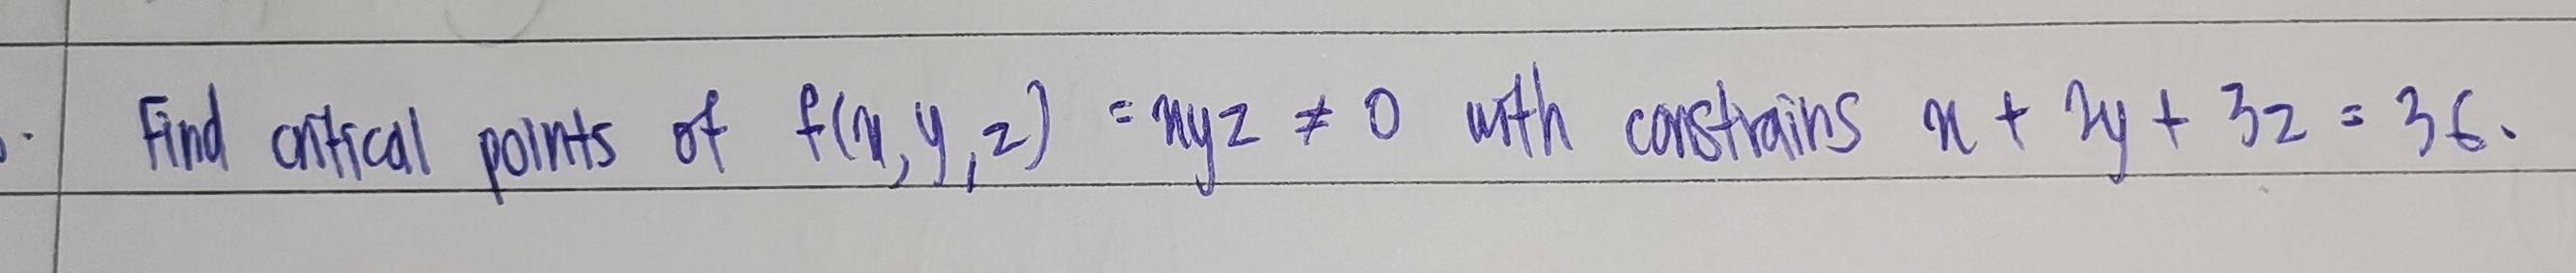 Find critical points of f(x,y,z) = xyz ≠ 0 with constrains x + 2y + 3z = 36.